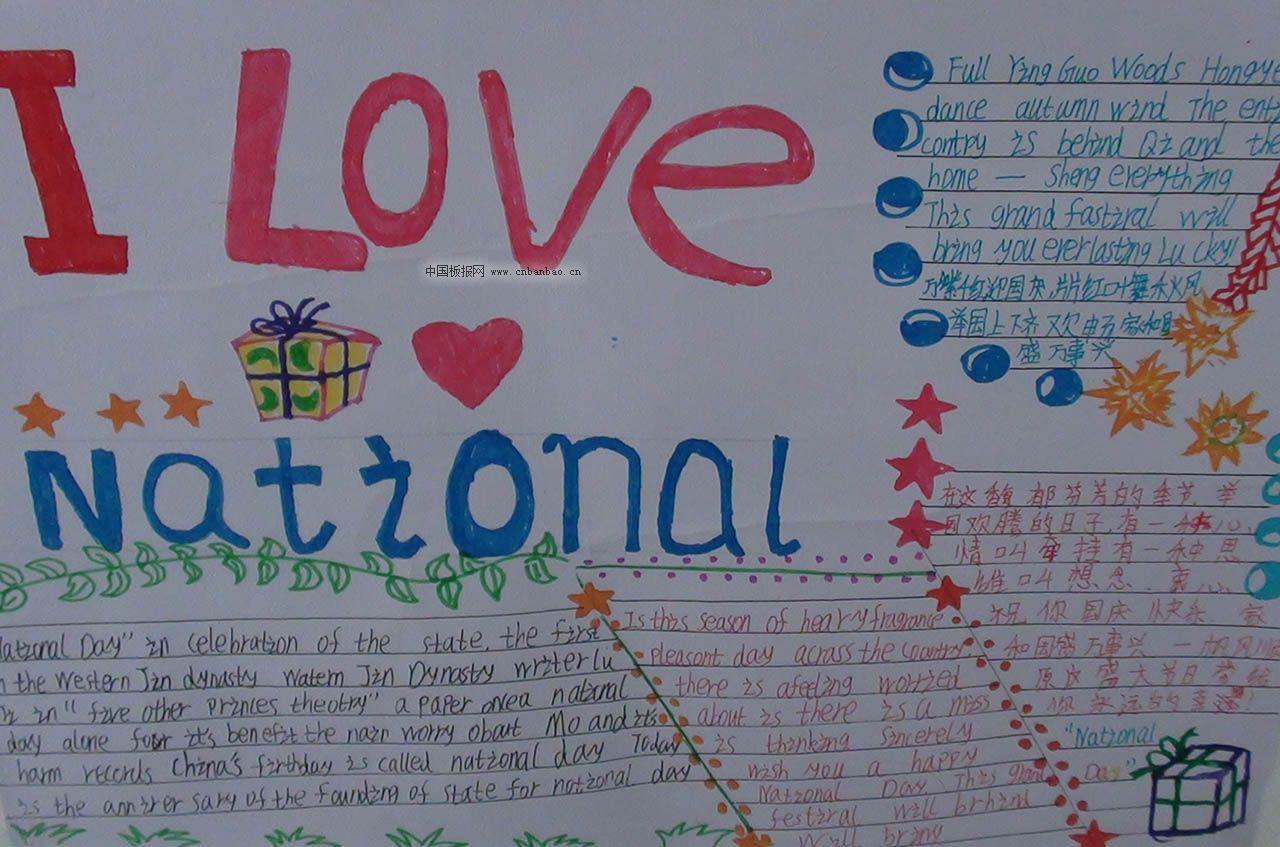 I LOVe
中国板报网 www.cnbanbao.cn
National
Full Ying Guo Woods Hongye
dance autumn wind The enti
contry is behind Qi and the
home — Sheng everything
This grand fastiral will
bring you everlasting Lucky!
万紫千红迎国庆,片片红叶舞秋风
举国上下齐欢畅 家和国
盛万事兴
在这馥郁芬芳的季节,举
国欢腾的日子,有一种心
情叫牵挂有一种思
维叫想念,衷心
祝你国庆快乐,家
和国盛万事兴 一帆风顺
愿这盛大节日带给
你永远的幸运!
"National
Day"
National Day" in celebration of the state. the first
n the Western Jin dynasty Watem Jin Dynasty writer Lu
in "five other princes theotry" a paper onea national
day alone foor it's benefit the nain worry obout Mo and it's
harm records China's firthday is called national day Today
is the annirer sary of the founding of state for national day
Is this season of heary fragrance
pleasont day across the country
there is afeeling worried
about is there is a miss
is thinking sincerely
wish you a happy
National Day This grand
festiral will brhind
will bring